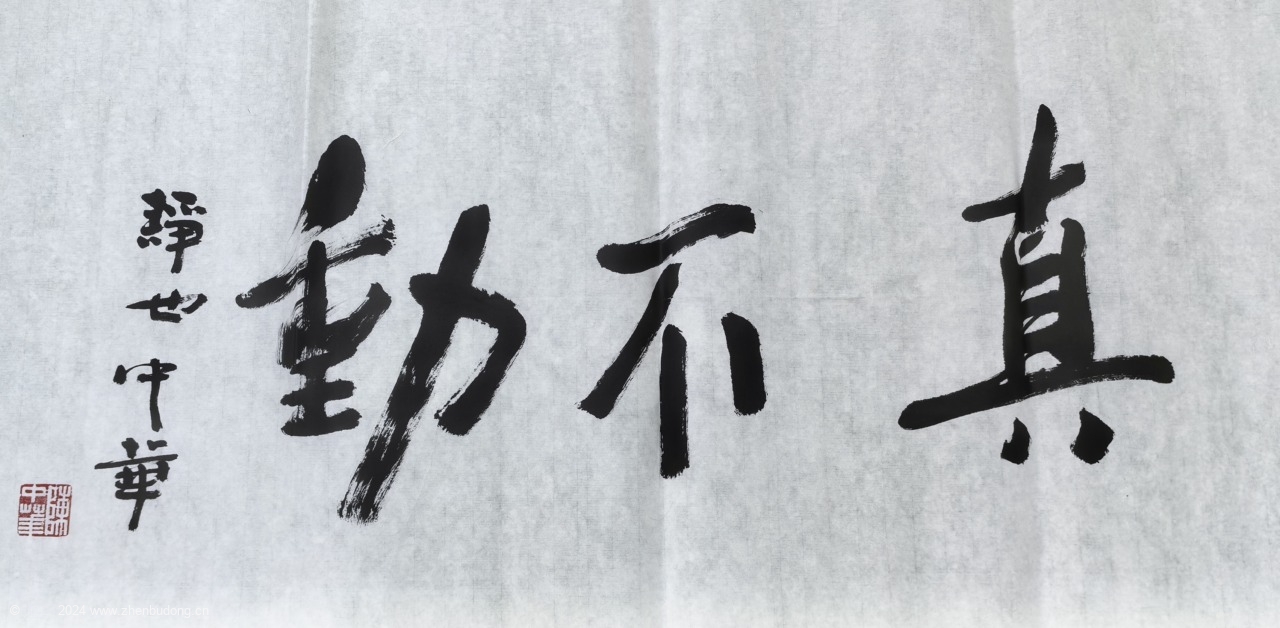 真不動
靜也中華
2024 www.zhenbudong.cn